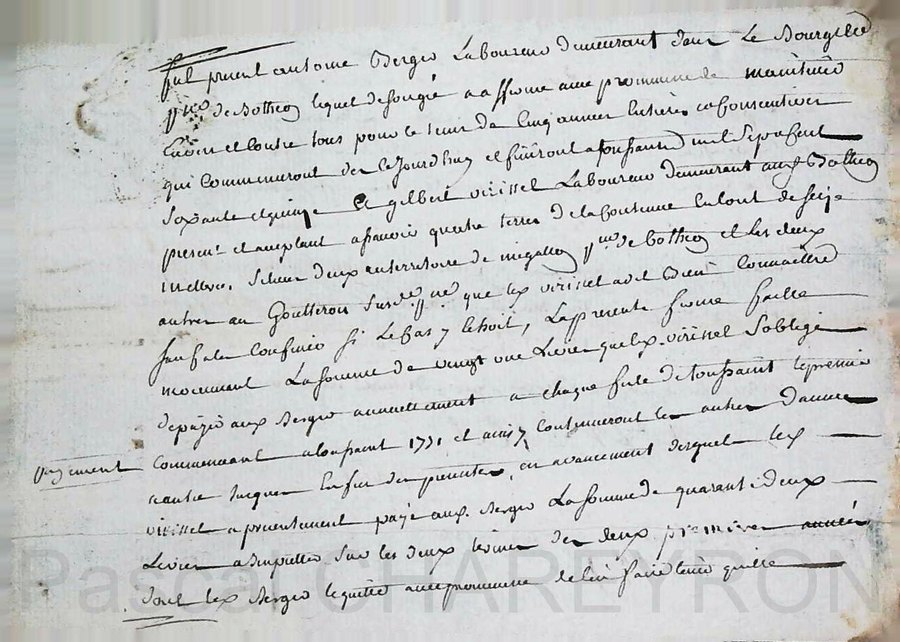 fut present antoine Berger Laboureur demeurant dans Le Bourg
de Botheo lequel de son gré a afferme avec promesse de maintenir
Envers et Contre tous pour le tems de Cinq années Entieres Consecutives
qui Commenceront des Cejourdhuy et finiront a toussaint mil Sept Cent
Soixante et quinze a gilbert virissel Laboureur demeurant aud Botheo
present et acceptant a scavoir quatre terres de la Contenue En tout de
deux au territoire de megallon de botheo et Les deux
autres au Goutteron Susd que led virissel a dit bien Connaitre
sans autre Confiner Si Le Cas y Echoit, La presente ferme faitte
moienant La Somme de vingt une Livre que led. virissel S'oblige
de payer aud Berger annuellement a chaque feste de toussaint le premier
Commencant a toussaint 1771 et ainsy Continueront les autres d'année
En autre Jusques En fin des presentes, En avancement desquels led
payement
virissel a presentement payé aud. Berger La Somme de quarante deux
Livres a Imputter Sur les deux termes des deux premieres années
dont led Berger le quitte avec promesse de len faire tenir quitte
Pascal CHAREYRON